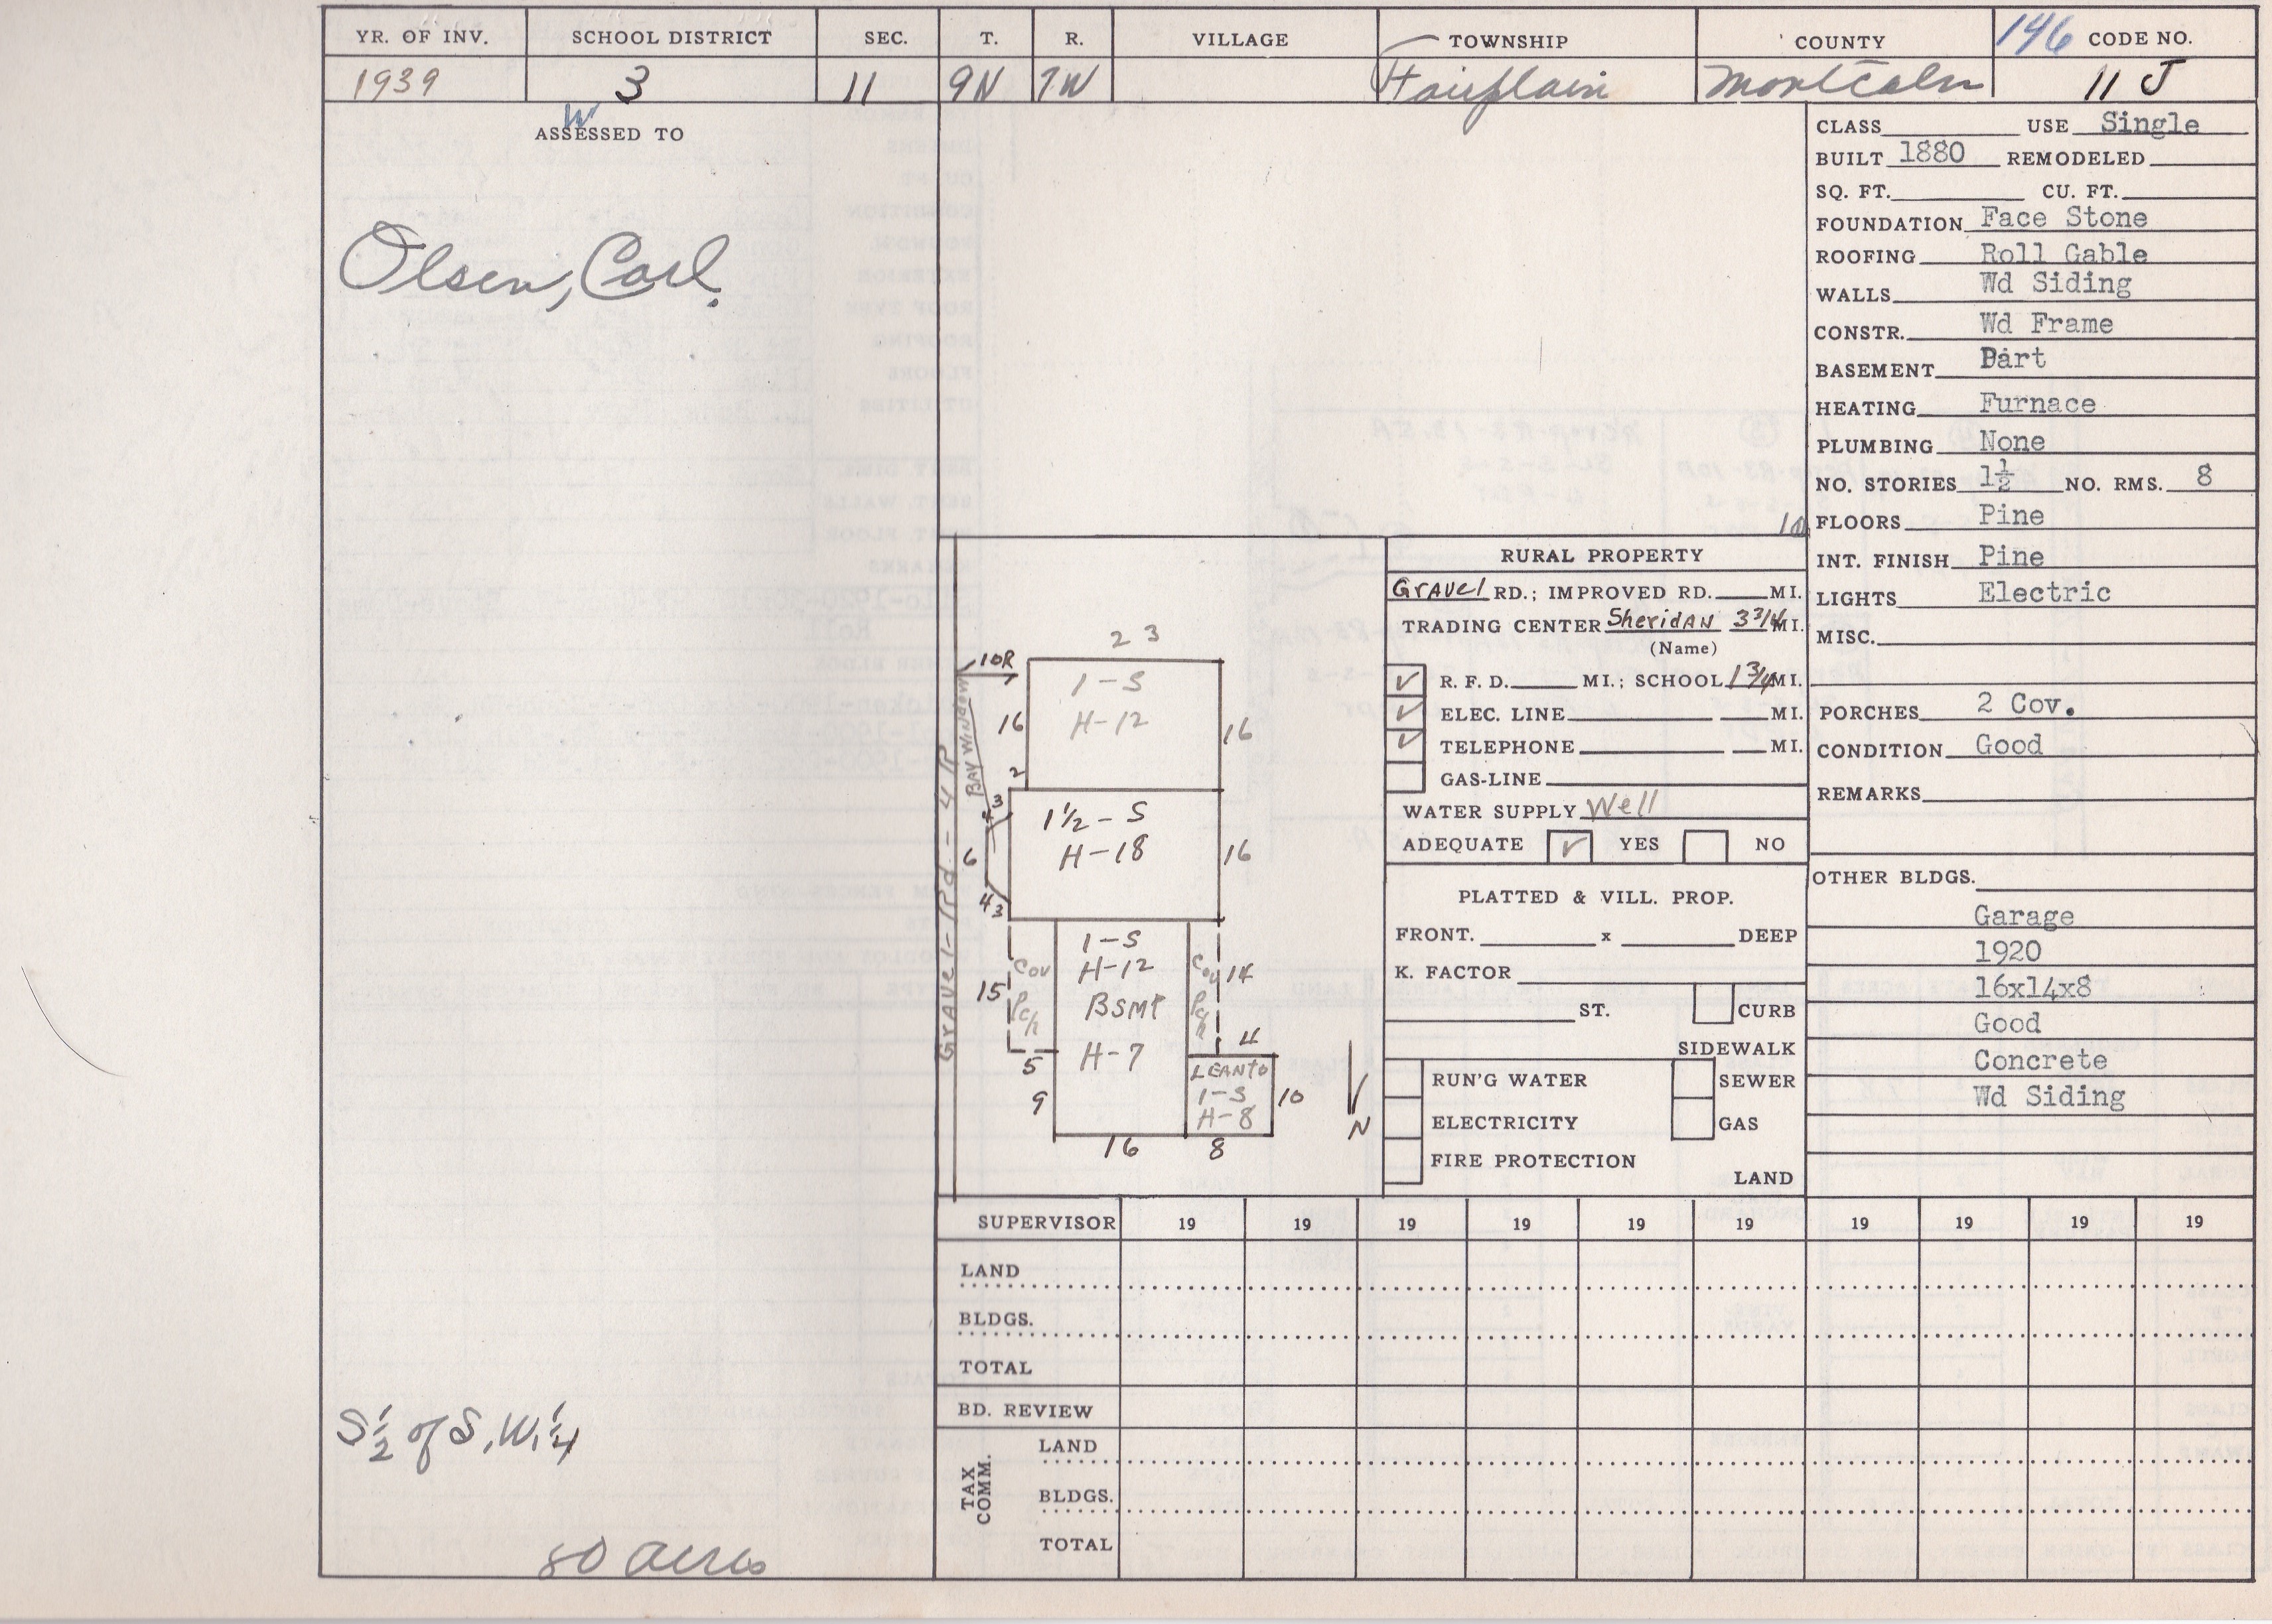 YR. OF INV. SCHOOL DISTRICT SEC. T. R. VILLAGE TOWNSHIP COUNTY 146 CODE NO.
1939 3 11 9N 7W Fairplain Montcalm 11 J
W
ASSESSED TO
Olsen, Carl.
S 1/2 of S.W. 1/4
80 acres
GRAVEl - Rd - 4 R
10R
BAY WINDOW
23
1-S
H-12
16
16
2
3
4
1 1/2 - S
H-18
6
16
4 3
1-S
H-12
BSMT
H-7
Cov
Pch
15
Cov
Pch
14
5
4
9
LEANTO
1-S
H-8
10
16
8
N
10
RURAL PROPERTY
GRAVEl RD.; IMPROVED RD. MI.
TRADING CENTER SheridAN 3 3/4 MI.
(Name)
✓ R. F. D. MI.; SCHOOL 1 3/4 MI.
✓ ELEC. LINE MI.
✓ TELEPHONE MI.
GAS-LINE
WATER SUPPLY Well
ADEQUATE ✓ YES NO
PLATTED & VILL. PROP.
FRONT. x DEEP
K. FACTOR
ST. CURB
SIDEWALK
RUN'G WATER SEWER
ELECTRICITY GAS
FIRE PROTECTION
LAND
CLASS USE Single
BUILT 1880 REMODELED
SQ. FT. CU. FT.
FOUNDATION Face Stone
ROOFING Roll Gable
WALLS Wd Siding
CONSTR. Wd Frame
BASEMENT Part
HEATING Furnace
PLUMBING None
NO. STORIES 1½ NO. RMS. 8
FLOORS Pine
INT. FINISH Pine
LIGHTS Electric
MISC.
PORCHES 2 Cov.
CONDITION Good
REMARKS
OTHER BLDGS.
Garage
1920
16x14x8
Good
Concrete
Wd Siding
SUPERVISOR 19 19 19 19 19 19 19 19 19 19
LAND
BLDGS.
TOTAL
BD. REVIEW
TAX COMM.
LAND
BLDGS.
TOTAL